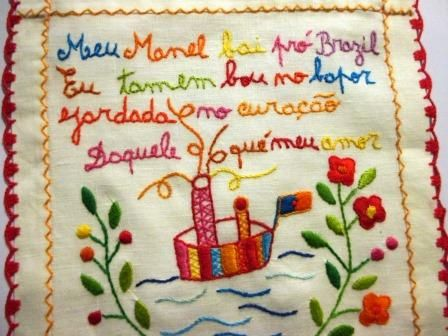 Meu Manel bai pró Brazil
Eu tamem bou no bapor
gardada no curação
Daquele qué meu amor